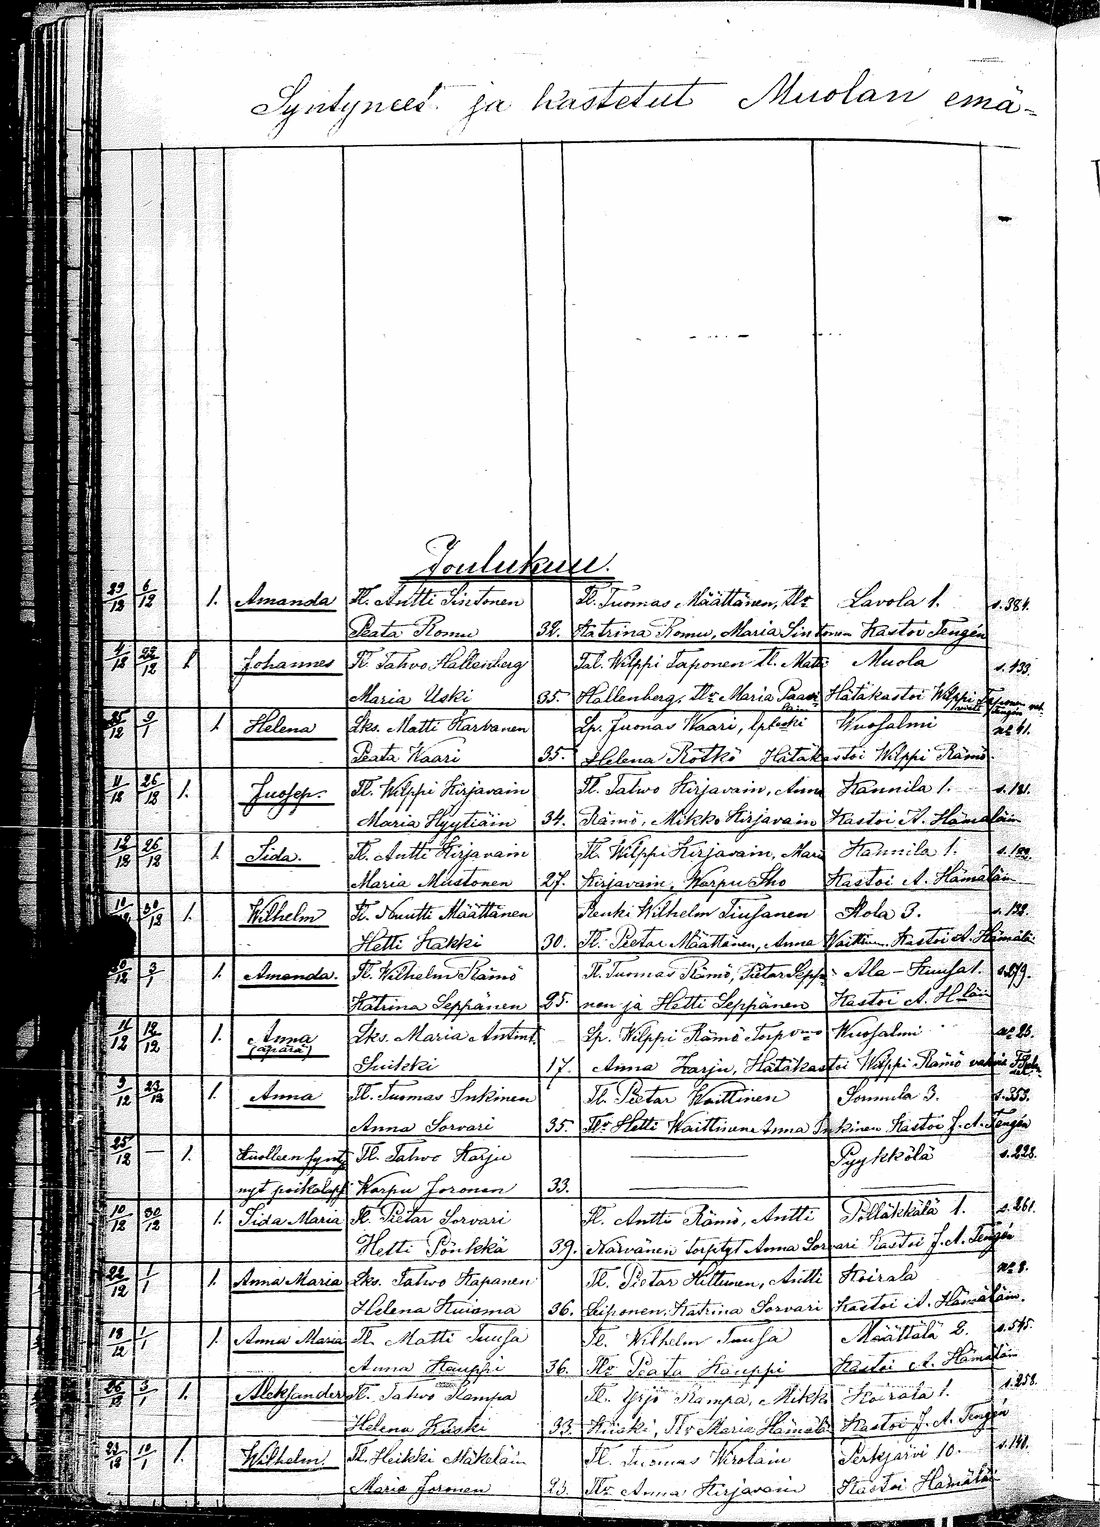 Syntyneet ja kastetut Muolan emä=
Joulukuu.
29/12 6/12 1. Amanda Tl. Antti Sintonen Tl. Tuomas Määttänen, Tlr Lavola 1. s. 384.
Beata Romu 32. Katrina Romu, Maria Sintonen Kastoi Tengén
4/12 22/12 1 Johannes Tl. Tahvo Hallenberg Tal. Wilppi Taponen Tl. Matti Muola s. 433.
Maria Uski 35. Hallenberg, Tlr Maria Paavi Hätäkastoi Wilppi Taponen
25/12 9/1 1 Helena Lks. Matti Karvanen Lp. Juonas Kaari, lpleski Wuosalmi no 41.
Beata Kaari 35. Helena Rötkö Hätäkastoi Wilppi Rämö.
11/12 26/12 1. Juosep. Tl. Wilppi Kirjavain Tl. Tahvo Kirjavain, Anna Kannila 1. s. 181.
Maria Hyytiäin 34. Rämö, Mikko Kirjavain Kastoi A. Hämäläin
12/12 26/12 1. Iida. Tl. Antti Kirjavain Tl. Wilppi Kirjavain, Mari Kannila 1.
Maria Mustonen 27. Kirjavain, Warpu Iho Kastoi A. Hämäläin
10/12 30/12 1. Wilhelm Tl. Nuutti Määttänen Renki Wilhelm Tiusanen Hola 3. s. 132.
Hetti Kakki 30. Tl. Pietar Määttänen, Anna Waittinen Kastoi A. Hämäläi
30/12 3/1 1. Amanda. Tl. Wilhelm Rämö Tl. Tuomas Rämö, Pietar Seppä= Ala-Kuusa 1. s. 279.
Katrina Seppänen 25. nen ja Hetti Seppänen Kastoi A. Hläin
11/12 12/12 1. Anna Lks. Maria Antint. Lp. Wilppi Rämö Torp Wuosalmi no 25.
(äpärä)
Suikki 17. Anna Karju, Hätäkastoi Wilppi Rämö
9/12 23/12 1. Anna Tl. Tuomas Inkinen Tl. Pietar Waittinen Sormula 3. s. 353.
Anna Sorvari 35. Tlr Hetti Waittinen Anna Inkinen Kastoi J. A. Tengén
25/12 — 1. Kuolleen synty Tl. Tahvo Karju Pyykkölä s. 228.
nyt poikalapsi Warpu Joronen 33.
10/12 30/12 1. Iida Maria Tl. Pietar Sorvari Tl. Antti Rämö, Antti Pölläkkälä 1. s. 261.
Hetti Pönkkä 39. Narvänen torptyt Anna Sorvari Kastoi J. A. Tengén
22/12 1/1 1. Anna Maria Lks. Tahvo Kapanen Tl. Pietar Hiltunen, Antti Koirala no 8.
Helena Kuisma 36. Seiponen, Katrina Sorvari Kastoi A. Hämäläin.
18/12 1/1 1. Anna Maria Tl. Matti Tuusa Tl. Wilhelm Tuusa Määttälä 2. s. 545.
Anna Kauppi 36. Tlr Beata Kauppi Kastoi A. Hämäläin
26/12 3/1 1. Aleksander Tl. Tahvo Rampa Tl. Yrjö Rampa, Mikko Koirala 1. s. 258.
Helena Kiiski 33. Kiiski, Tlr Maria Hämälä Kastoi J. A. Tengén
23/12 10/1 1. Wilhelm. Tl. Heikki Mäkeläin Tl. Tuomas Wirolain Perkjärvi 10. s. 141.
Maria Joronen 23. Tlr Anna Kirjavain Kastoi Hämäläi